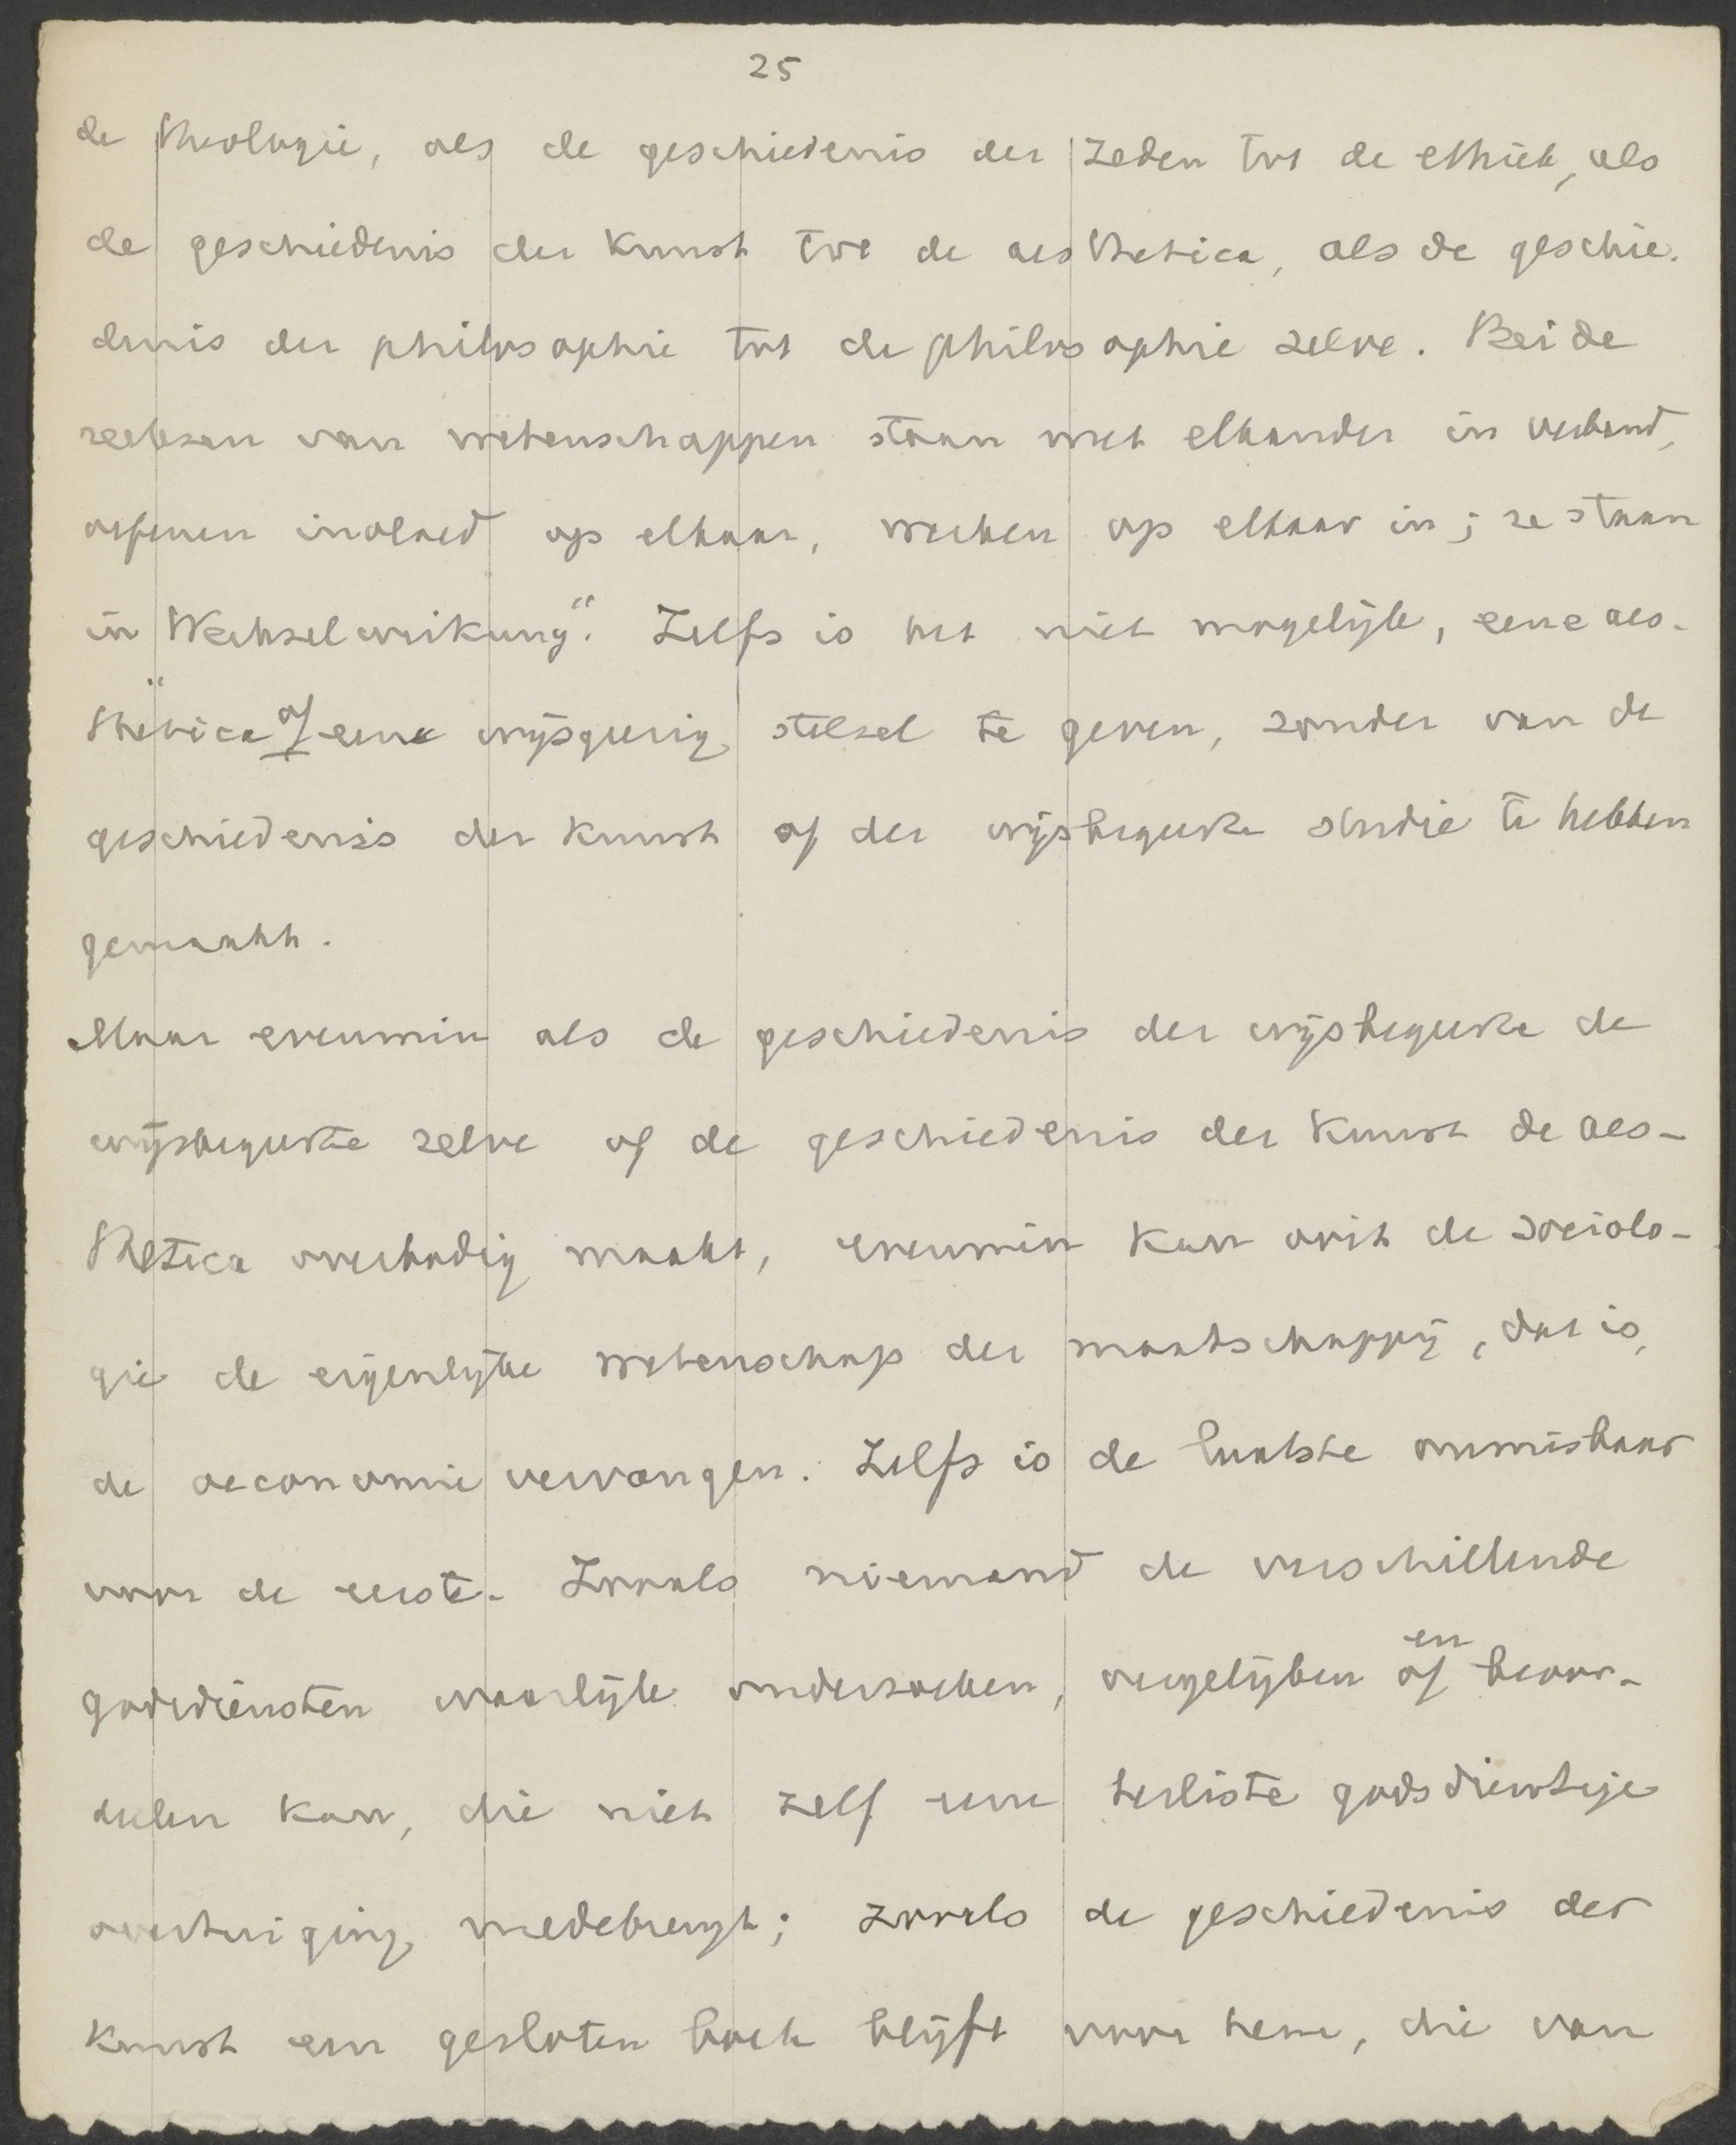 25
de theologie, als de geschiedenis der zeden tot de ethiek, als
de geschiedenis der kunst tot de aesthetica, als de geschie-
denis der philosophie tot de philosophie zelve. Beide
reeksen van wetenschappen staan met elkander in verband,
oefenen invloed op elkaar, werken op elkaar in; ze staan
in "Wechselwirkung". Zelfs is het niet mogelijk, eene aes-
thetica of eene wijsgeerig stelsel te geven, zonder van de
geschiedenis der kunst of der wijsbegeerte studie te hebben
gemaakt.
Maar evenmin als de geschiedenis der wijsbegeerte de
wijsbegeerte zelve of de geschiedenis der kunst de aes-
thetica overbodig maakt, evenmin kan ooit de sociolo-
gie de eigenlijke wetenschap der maatschappij, dat is,
de oeconomie vervangen. Zelfs is de laatste onmisbaar
voor de eerste. Zooals niemand de verschillende
godsdiensten waarlijk onderzoeken, vergelijken of en beoor-
deelen kan, die niet zelf eene besliste godsdienstige
overtuiging medebrengt; zooals de geschiedenis der
kunst een gesloten boek blijft voor hem, die van